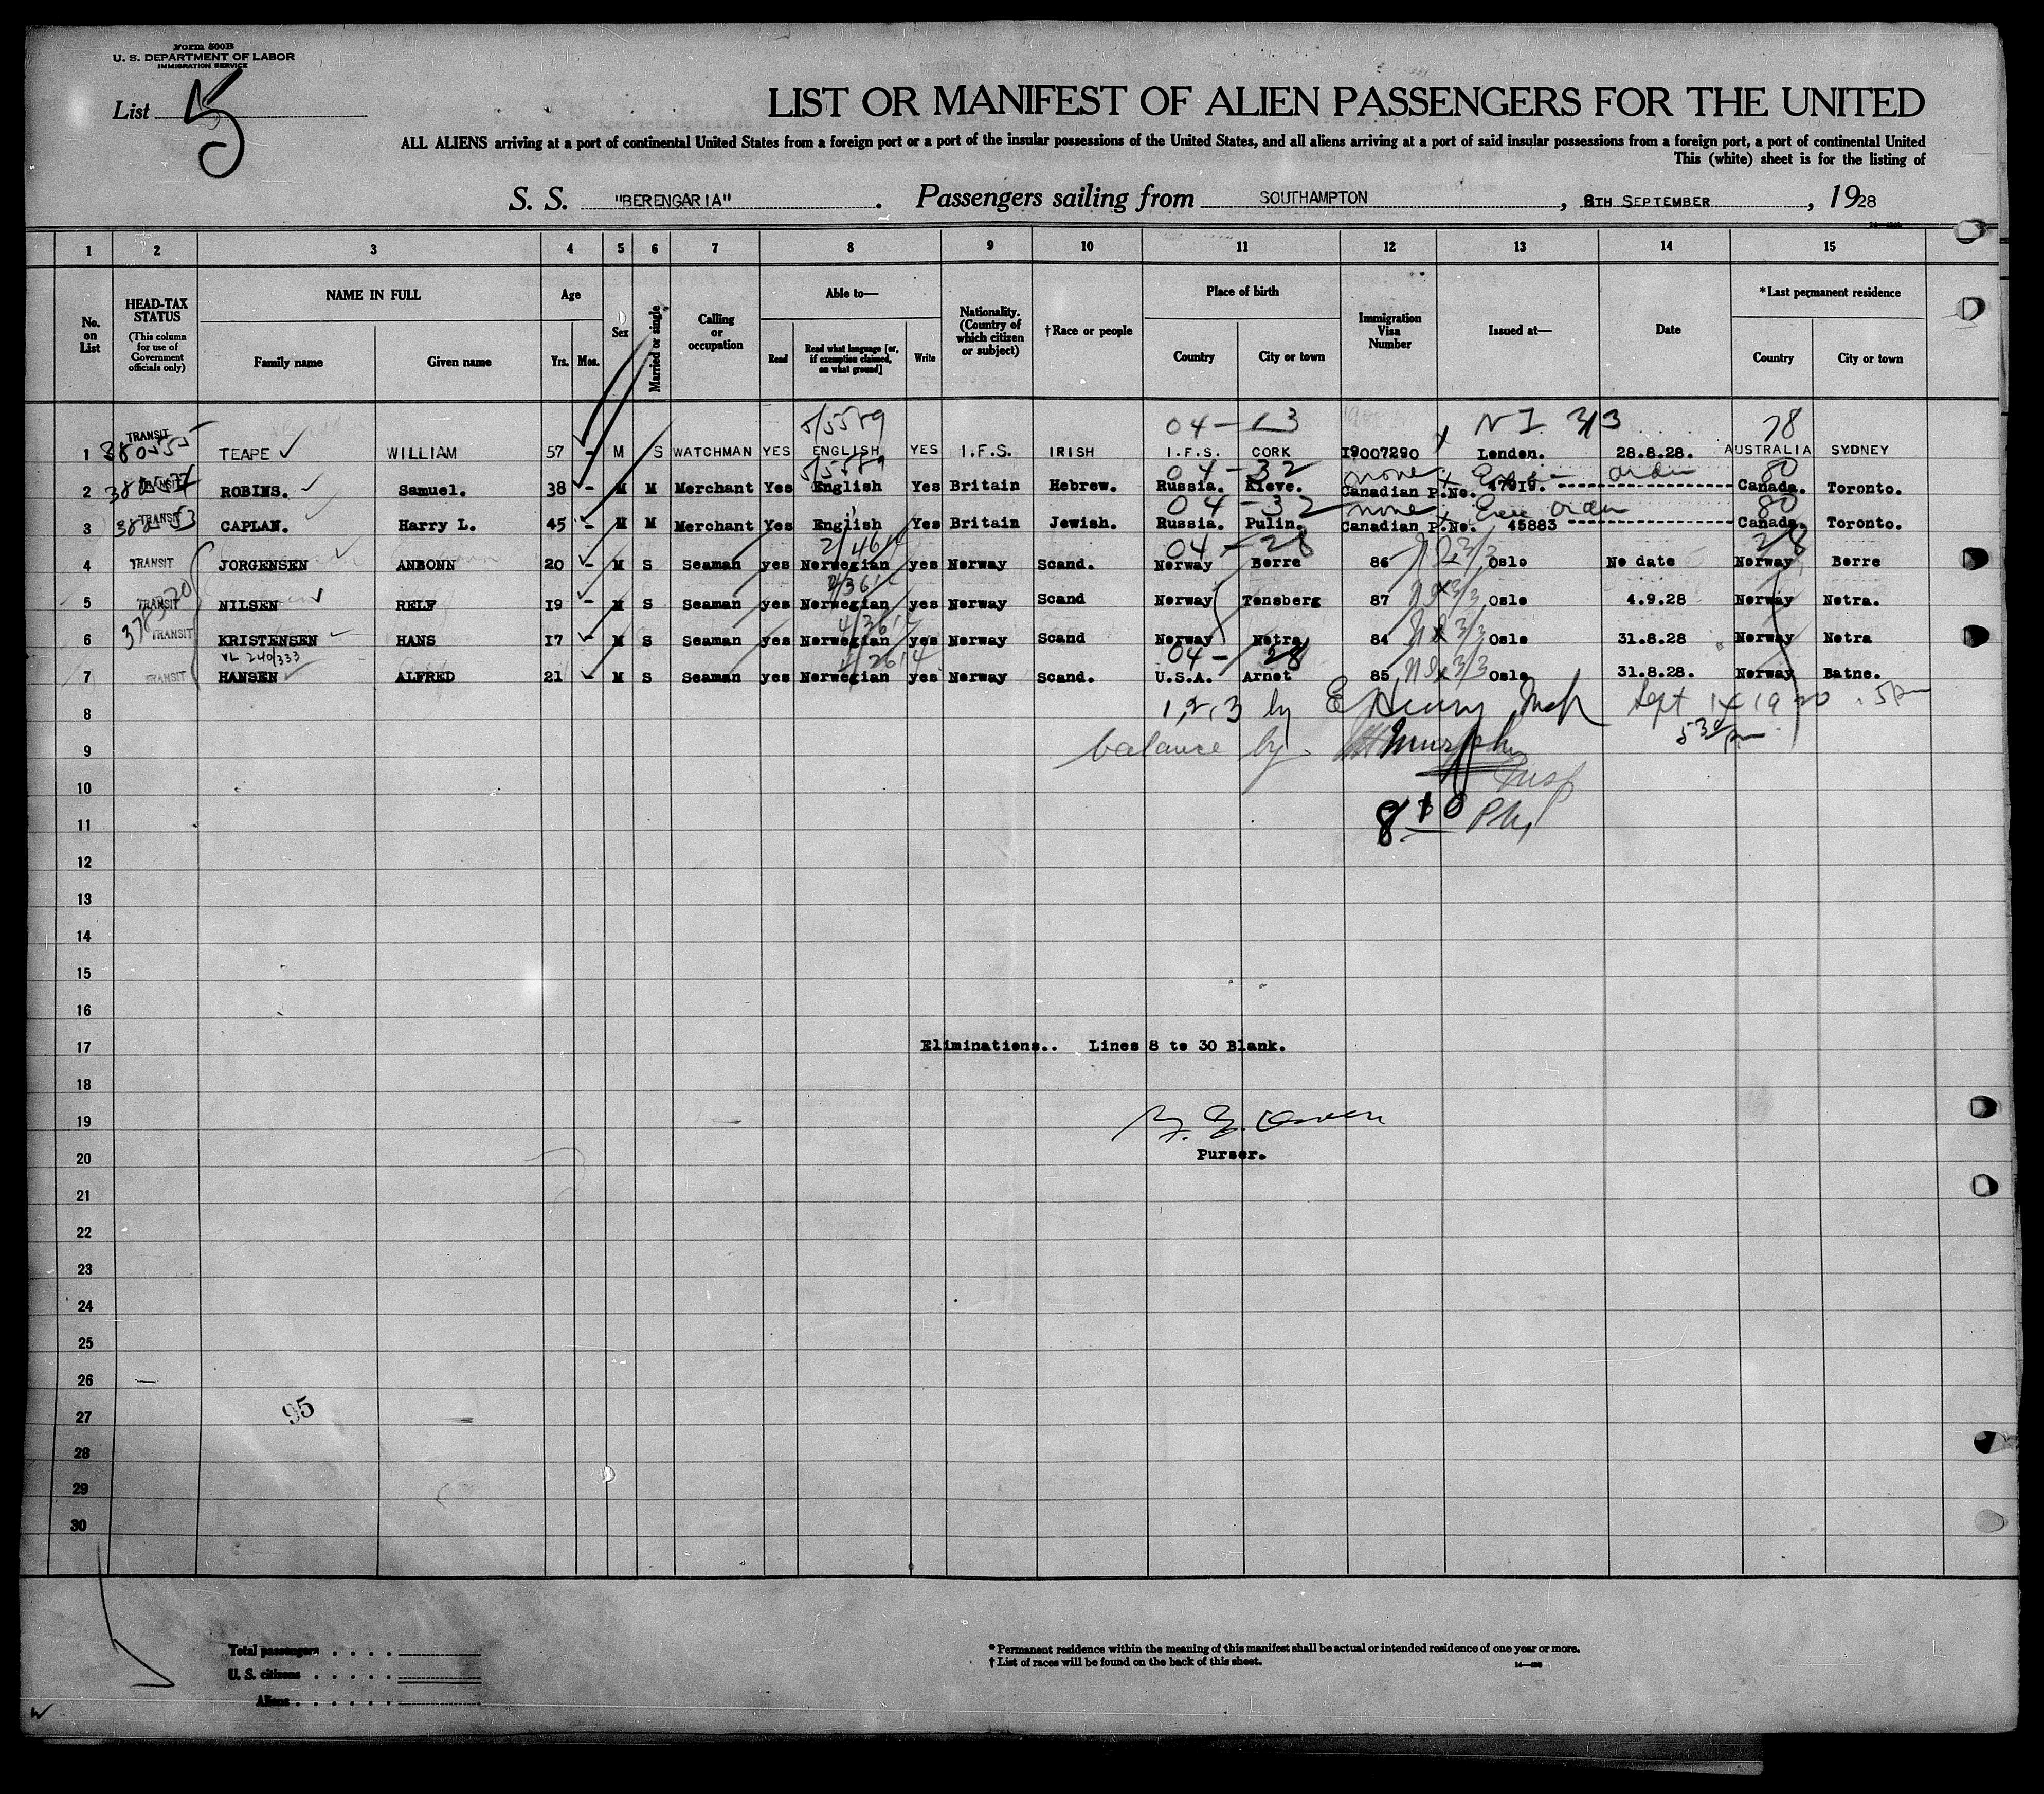 Form 500B
U. S. DEPARTMENT OF LABOR
IMMIGRATION SERVICE
List 5
LIST OR MANIFEST OF ALIEN PASSENGERS FOR THE UNITED
ALL ALIENS arriving at a port of continental United States from a foreign port or a port of the insular possessions of the United States, and all aliens arriving at a port of said insular possessions from a foreign port, a port of continental United
This (white) sheet is for the listing of
S. S. "BERENGARIA" . Passengers sailing from SOUTHAMPTON , 8TH SEPTEMBER , 1928
1 2 3 4 5 6 7 8 9 10 11 12 13 14 15
No. on List
HEAD-TAX STATUS (This column for use of Government officials only)
NAME IN FULL
Family name Given name
Age
Yrs. Mos.
Sex
Married or single
Calling or occupation
Able to—
Read
Read what language [or, if exemption claimed, on what ground]
Write
Nationality. (Country of which citizen or subject)
†Race or people
Place of birth
Country City or town
Immigration Visa Number
Issued at—
Date
*Last permanent residence
Country City or town
5/5589 04-13 N I 3/3 78
1 TRANSIT 388055 TEAPE WILLIAM 57 - M S WATCHMAN YES ENGLISH YES I.F.S. IRISH I.F.S. CORK 19007290 London. 28.8.28. AUSTRALIA SYDNEY
5/5589 04-32 none order 80
2 TRANSIT ROBINS. Samuel. 38 - M M Merchant Yes English Yes Britain Hebrew. Russia. Kieve. Canadian P.No. 47019. Canada. Toronto.
04-32 none Exec order 80
3 TRANSIT CAPLAN. Harry L. 45 - M M Merchant Yes English Yes Britain Jewish. Russia. Pulin. Canadian P.No. 45883 Canada. Toronto.
04-28 28
4 TRANSIT JORGENSEN ANBONN 20 - M S Seaman yes Norwegian yes Norway Scand. Norway Borre 86 3/3 Oslo No date Norway Borre
5 TRANSIT NILSEN RELF 19 - M S Seaman yes Norwegian yes Norway Scand Norway Tonsberg 87 3/3 Oslo 4.9.28 Norway Notra.
6 TRANSIT KRISTENSEN HANS 17 - M S Seaman yes Norwegian yes Norway Scand Norway Notra 84 3/3 Oslo 31.8.28 Norway Notra
VL 240/333 04-28
7 TRANSIT HANSEN ALFRED 21 M S Seaman yes Norwegian yes Norway Scand. U.S.A. Arnot 85 3/3 Oslo 31.8.28. Norway Batne.
8 1, 2, 3 by E Henry Insp Sept 14 19 5 pm
530 pm
9 balance by Murphy
Insp
10
11 8 10 PM
12
13
14
15
16
17 Eliminations.. Lines 8 to 30 Blank.
18
19
20 Purser.
21
22
23
24
25
26
27 95
28
29
30
Total passengers
U. S. citizens
Aliens
* Permanent residence within the meaning of this manifest shall be actual or intended residence of one year or more.
† List of races will be found on the back of this sheet.